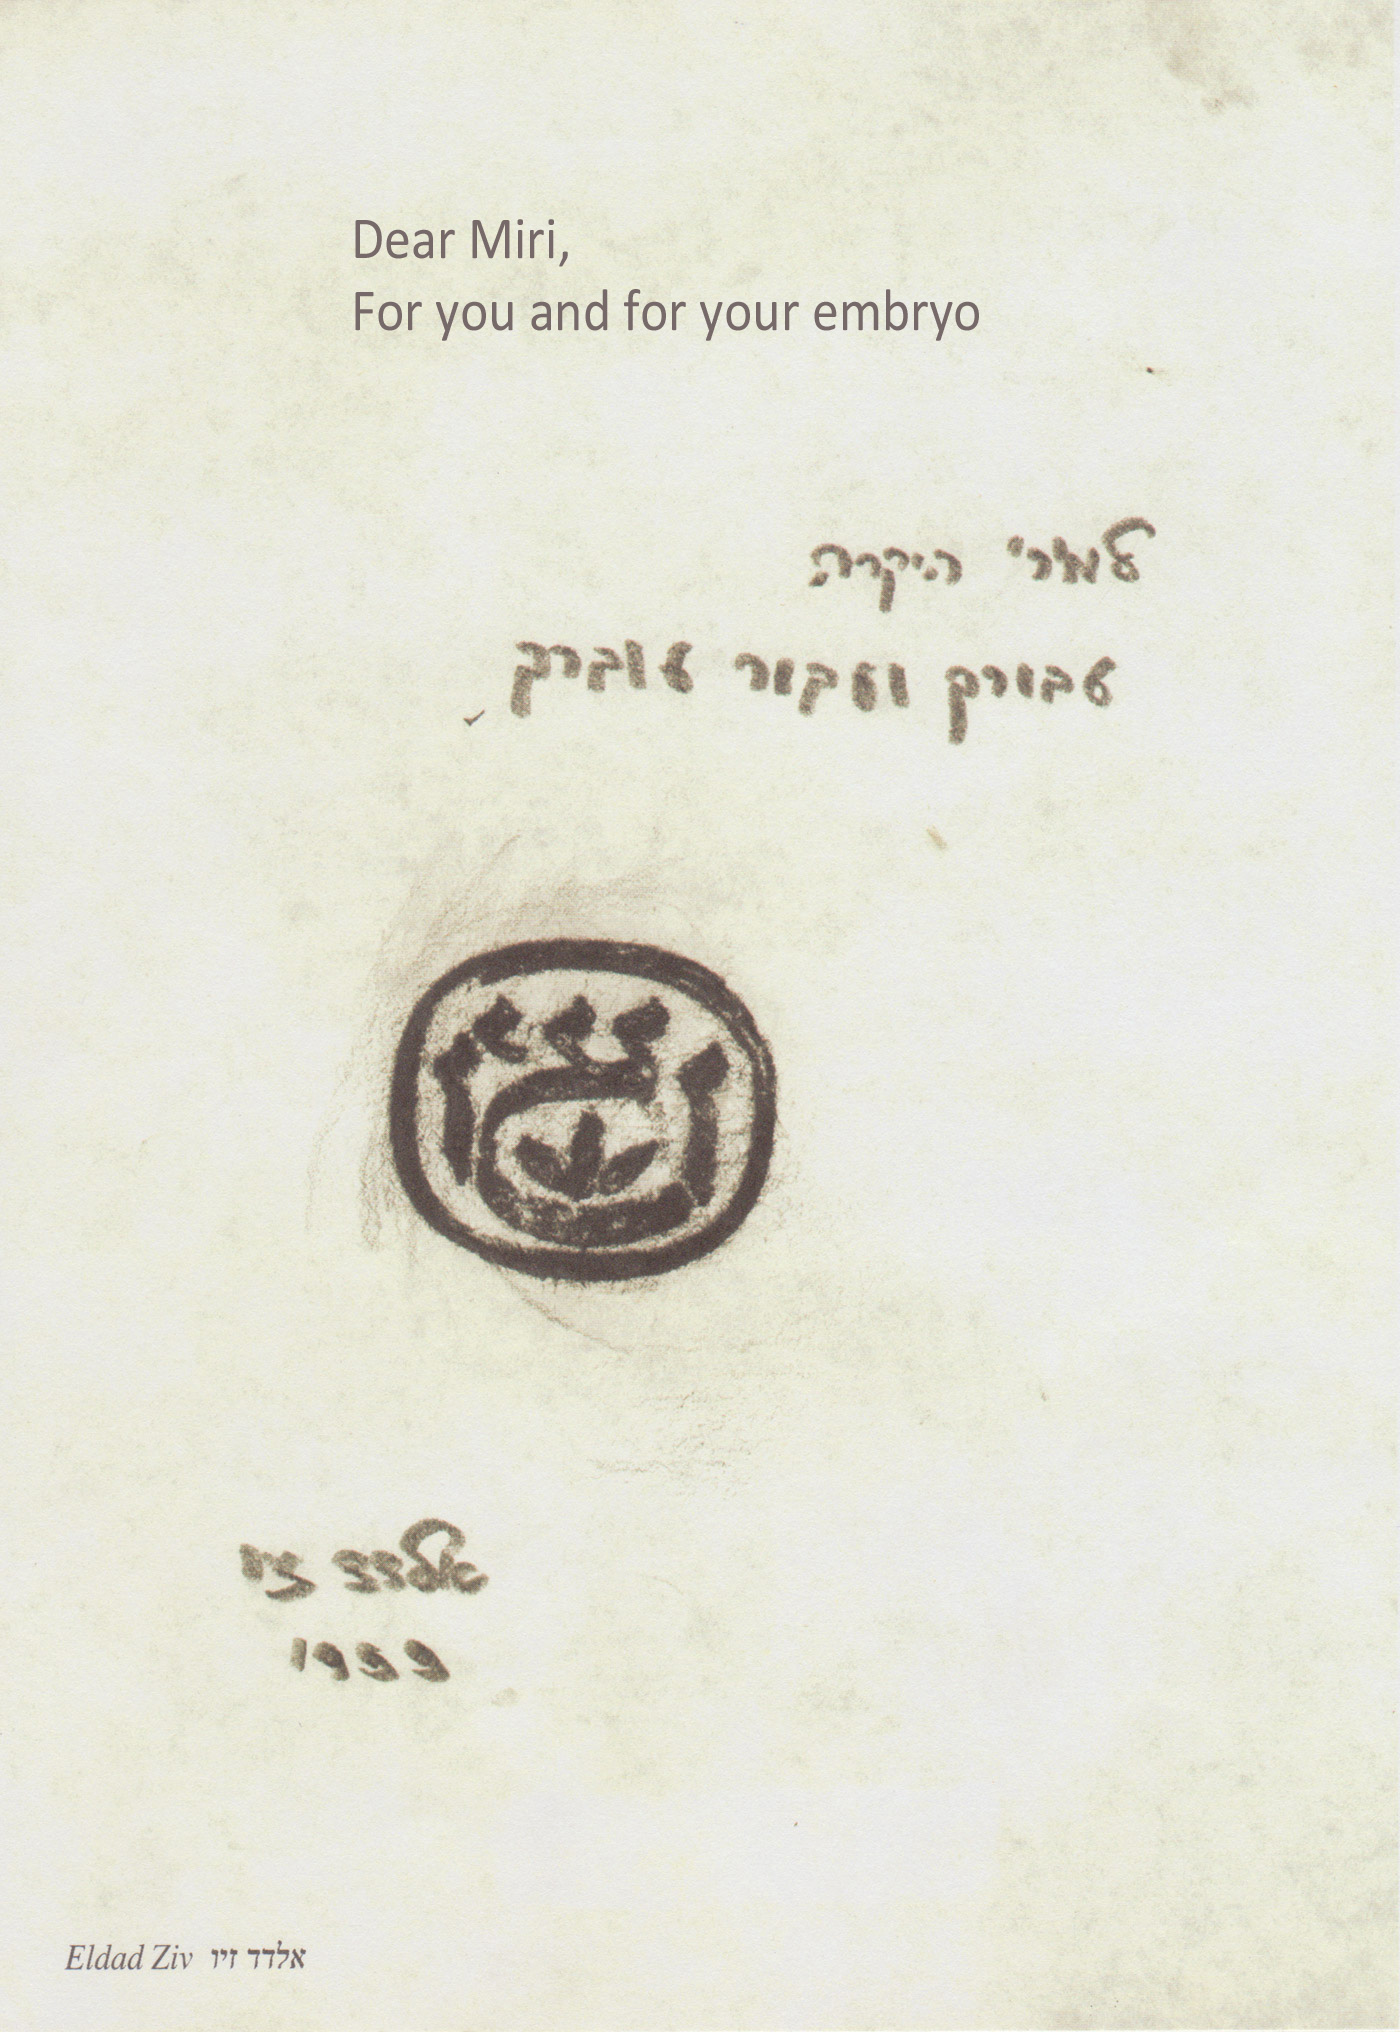 Dear Miri,
For you and for your embryo
למירי היקרה
עבורך ועבור עוברך
אלדד זיו
1999
Eldad Ziv אלדד זיו